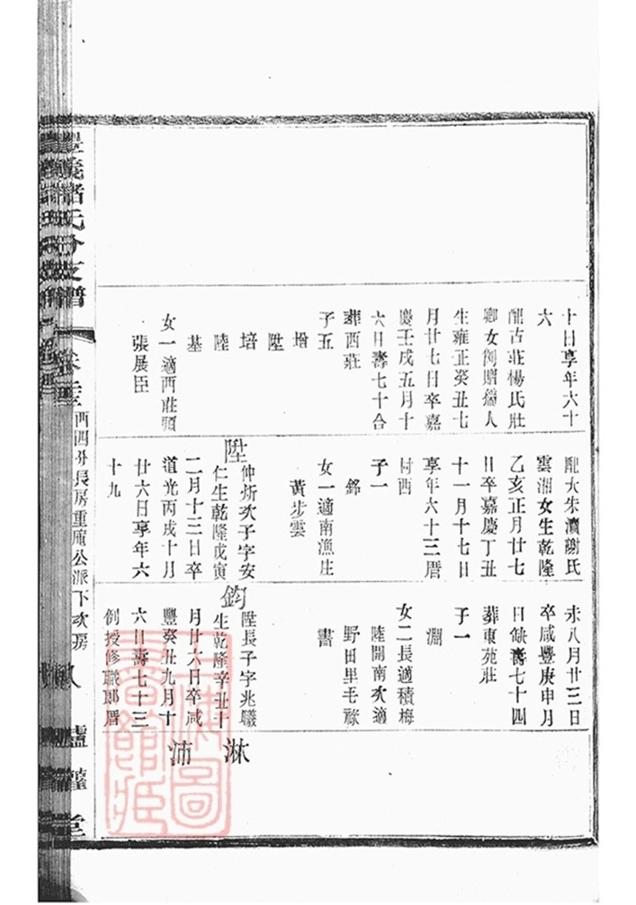 十日享年六十
六
配古莊楊氏壯
卿女例贈孺人
生雍正癸丑七
月廿七日卒嘉
慶壬戌五月十
六日壽七十合
葬西莊
子五
增
陞
培
陸
基
女一適西莊頭
張展臣
配大朱瀆謝氏
雲湘女生乾隆
乙亥正月廿七
日卒嘉慶丁丑
十一月十七日
享年六十三厝
村西
子一
錦
女一適南漁庄
黃步雲
陞
仲炘次子字安
仁生乾隆戊寅
二月十三日卒
道光丙戌十月
廿六日享年六
十九
未八月廿三日
卒咸豐庚申月
日缺壽七十四
葬東苑莊
子一
淵
女二長適積梅
陸開南次適
野田里毛祿
書
鈞
陞長子字兆驥
生乾隆辛丑十
月廿六日卒咸
豐癸丑九月十
六日壽七十三
例授修職郎厝
淋
沛
氏分支譜
卷
西四分長房重
公派下次房
八
堂